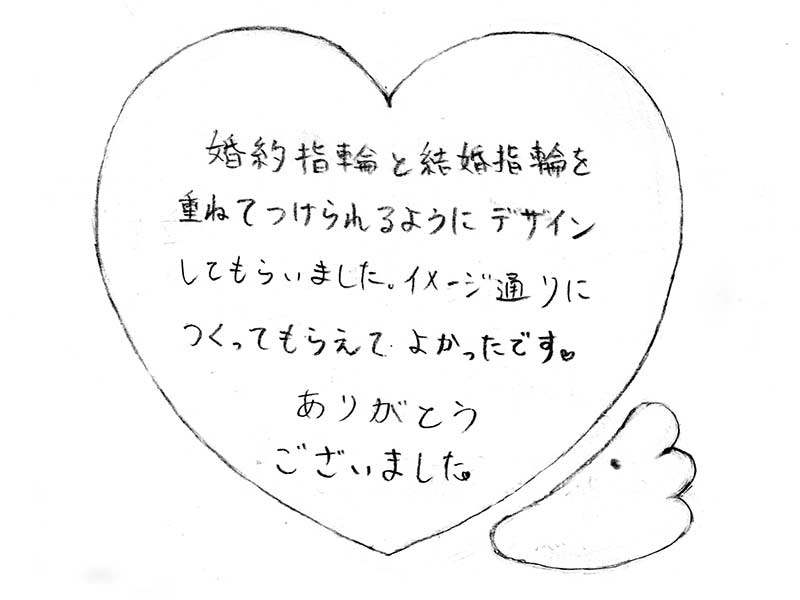 婚約指輪と結婚指輪を
重ねてつけられるようにデザイン
してもらいました。イメージ通りに
つくってもらえてよかったです。
ありがとう
ございました